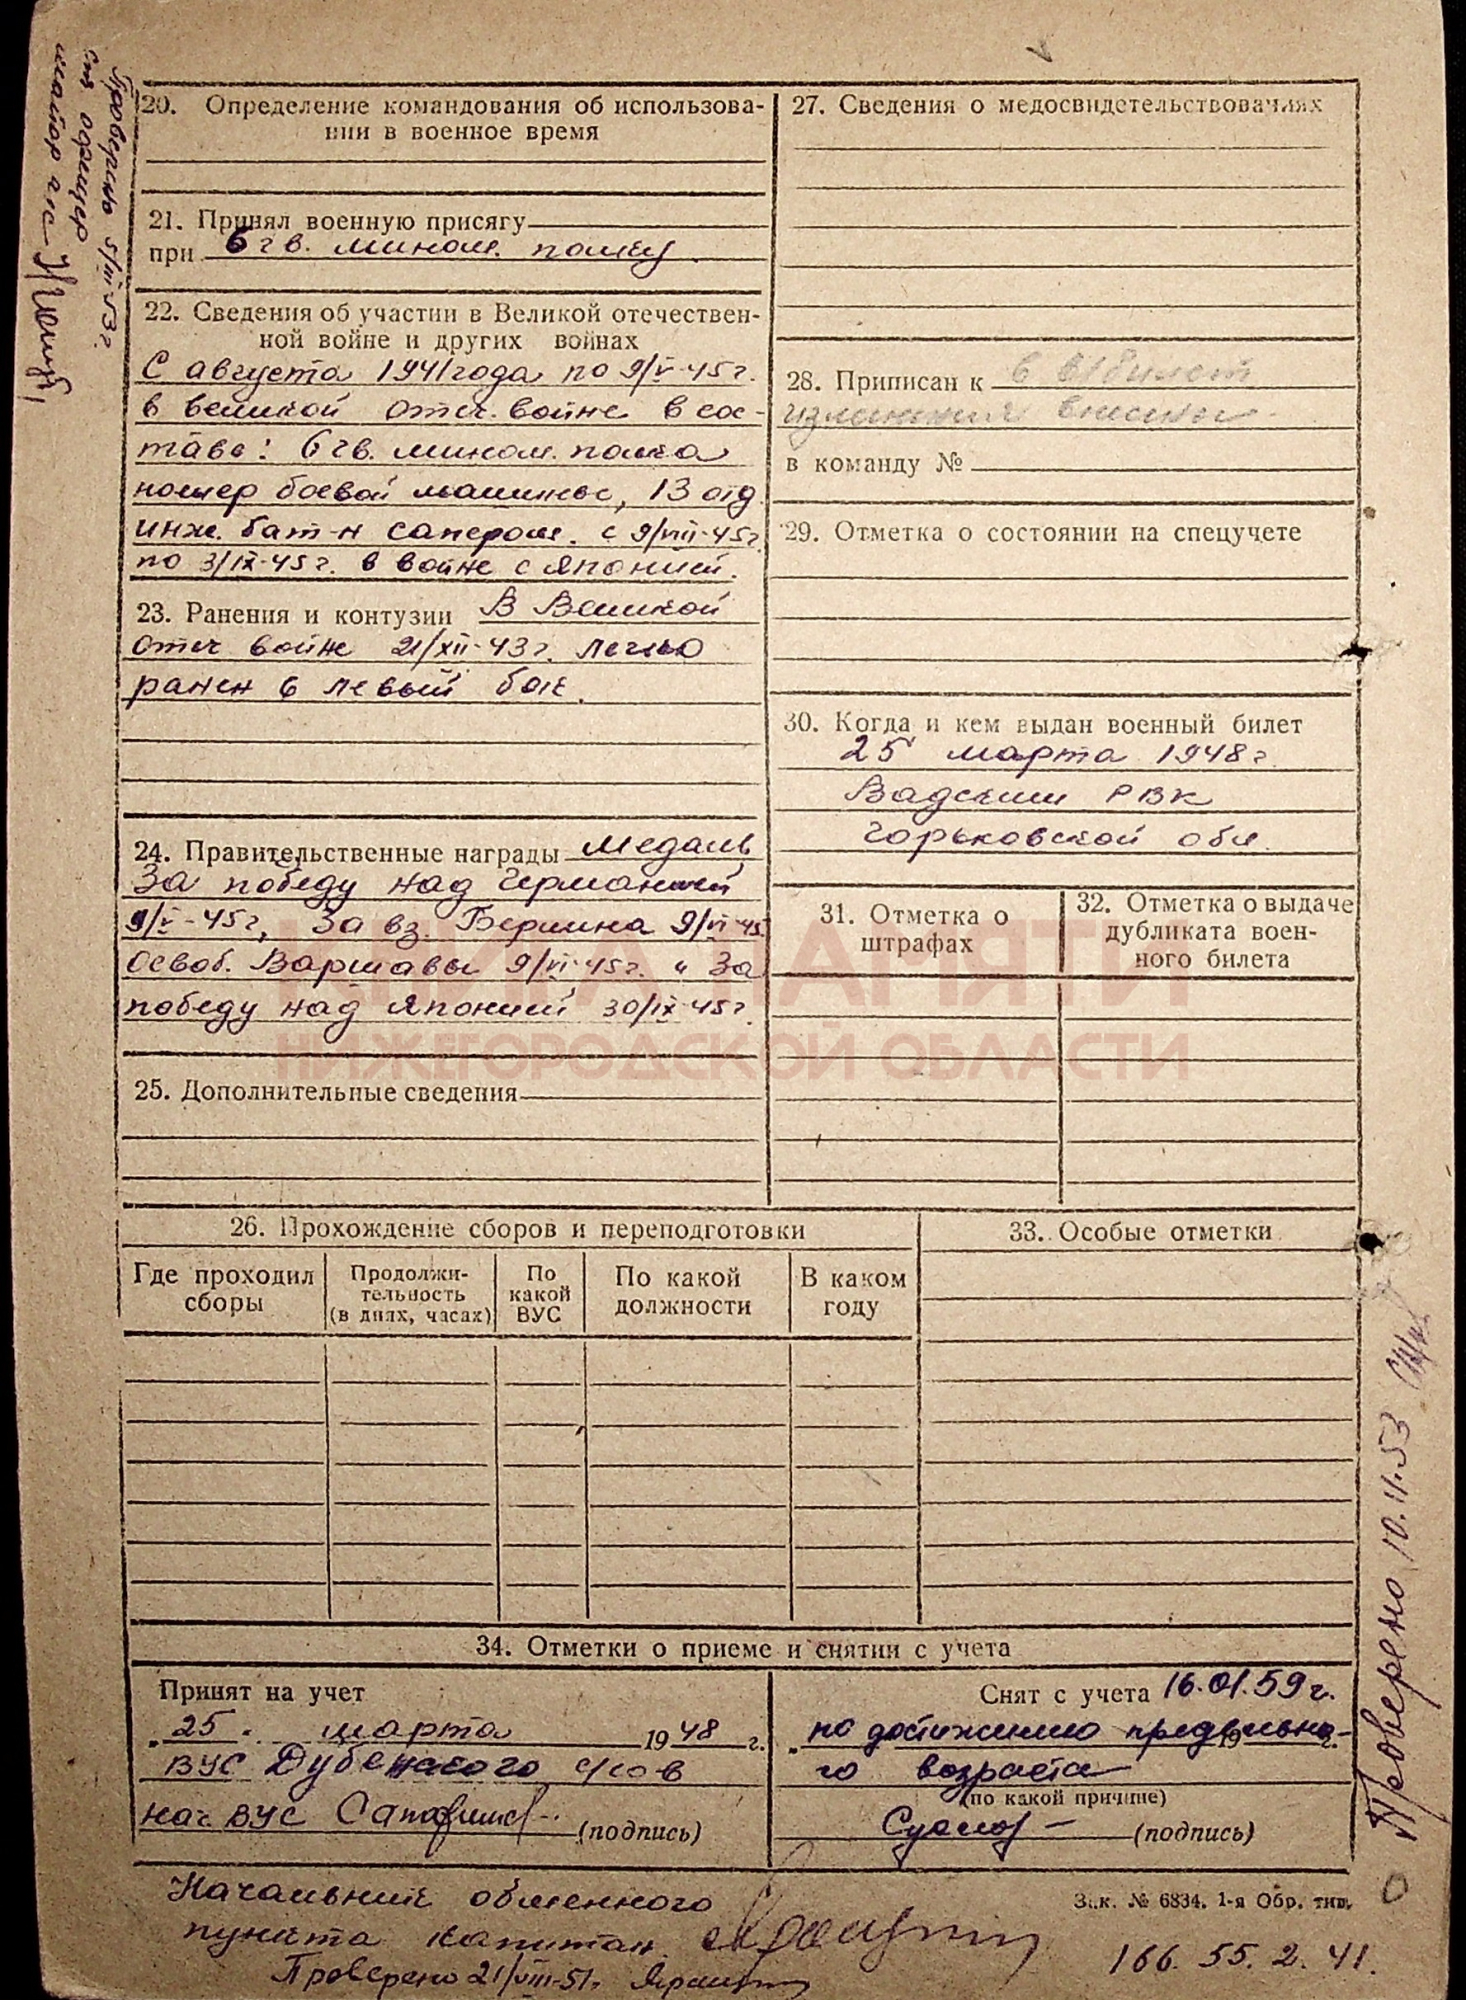 Проверено 5/III-53г.
ст. офицер
майор а/с
20. Определение командования об использова-
нии в военное время
21. Принял военную присягу
при 6 гв. мином. полку
22. Сведения об участии в Великой отечествен-
ной войне и других войнах
С августа 1941 года по 9/V-45г.
в великой отеч. войне в сос-
таве: 6 гв. мином. полка
номер боевой машины, 13 отд
инж. бат-н сапером. с 9/VIII-45г.
по 3/IX-45г. в войне с Японией.
23. Ранения и контузии В Великой
отеч войне 21/XII-43г. легко
ранен в левый бок.
24. Правительственные награды Медаль
За победу над Германией
9/V-45г, За вз. Берлина 9/VI-45
Освоб. Варшавы 9/VI-45г. и За
победу над Японией 30/IX-45г.
25. Дополнительные сведения
27. Сведения о медосвидетельствованиях
28. Приписан к в в/билет
изменения внесены
в команду №
29. Отметка о состоянии на спецучете
30. Когда и кем выдан военный билет
25 марта 1948г.
Вадским РВК
Горьковской обл.
31. Отметка о
штрафах
32. Отметка о выдаче
дубликата воен-
ного билета
КНИГА ПАМЯТИ
НИЖЕГОРОДСКОЙ ОБЛАСТИ
26. Прохождение сборов и переподготовки
Где проходил
сборы
Продолжи-
тельность
(в днях, часах)
По
какой
ВУС
По какой
должности
В каком
году
33. Особые отметки
34. Отметки о приеме и снятии с учета
Принят на учет
"25" марта 1948 г.
ВУС Дубенского с/сов
нач ВУС (подпись)
Снят с учета 16.01.59г.
" по достижению предельно- 19 г.
го возраста
(по какой причине)
(подпись)
Проверено 10.11.53
Начальник обменного
пункта капитан
Проверено 21/VIII-51г.
Зак. № 6834. 1-я Обр. тип.
166. 55. 2. 41.